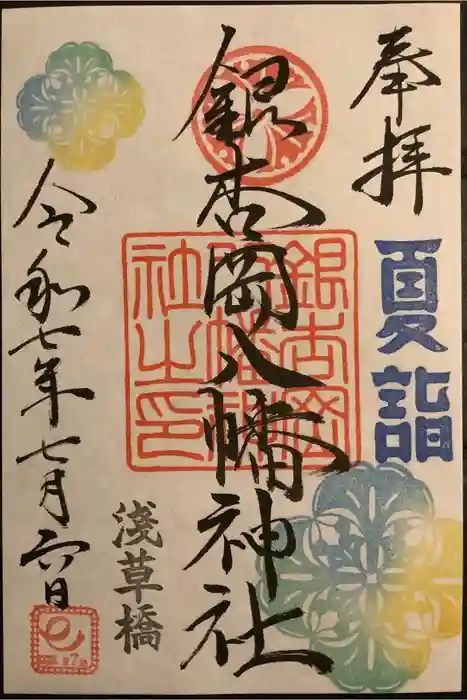 奉拝
夏詣
銀杏岡八幡神社
銀杏岡八幡神社之印
浅草橋
令和七年七月六日